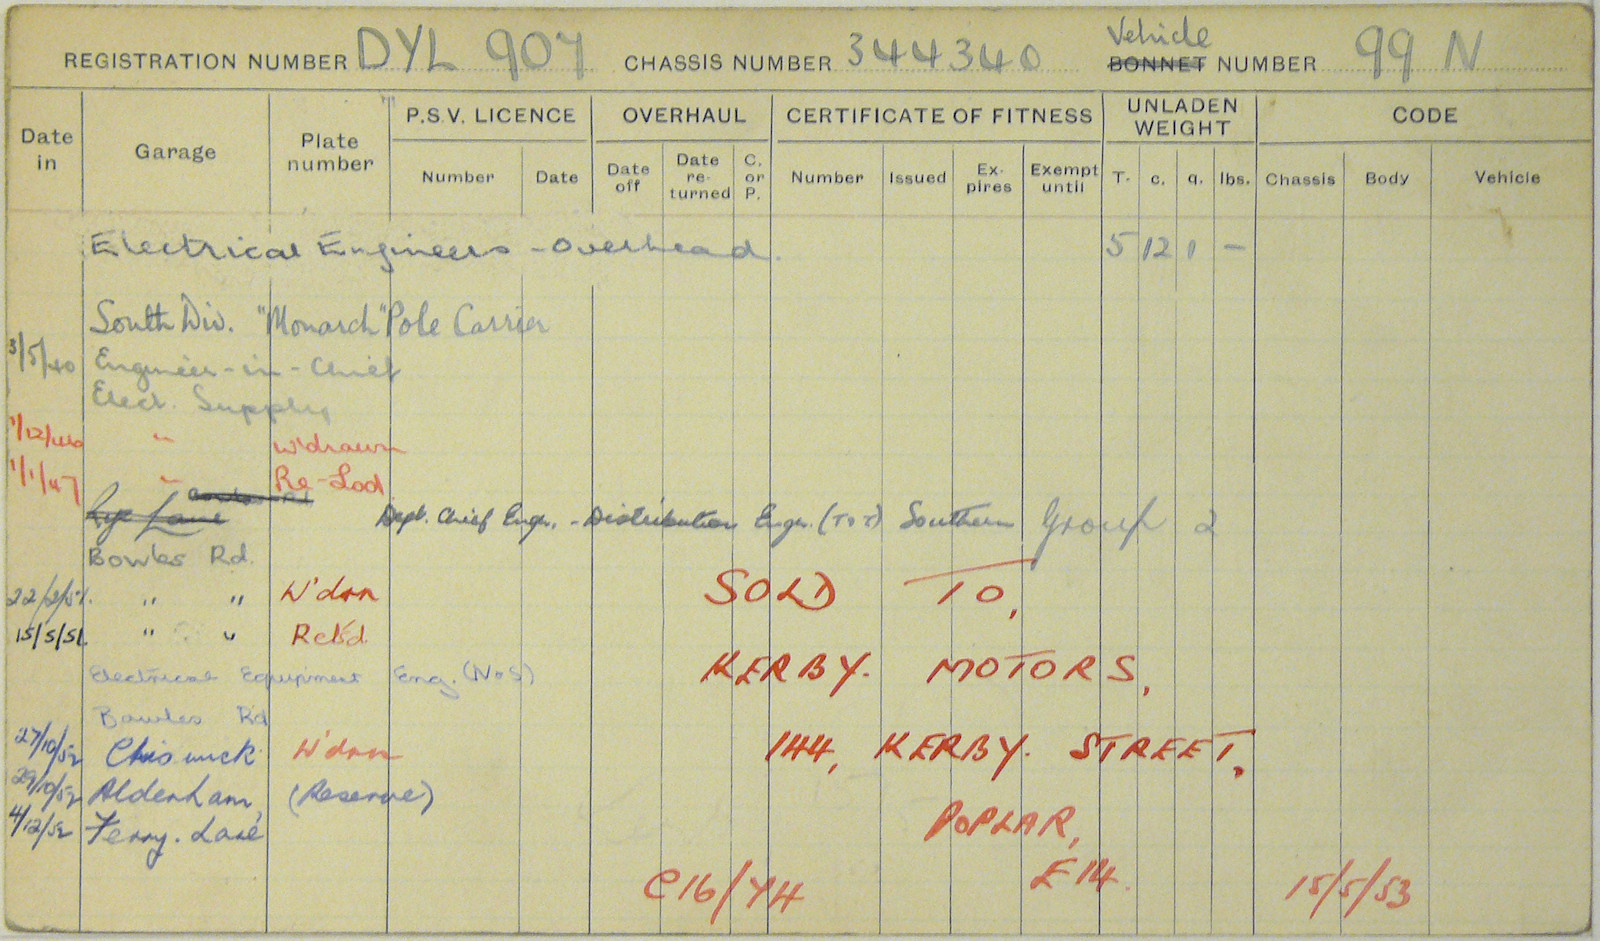 REGISTRATION NUMBER DYL 907 CHASSIS NUMBER 344340 Vehicle BONNET NUMBER 99 N
Date in Garage Plate number P.S.V. LICENCE OVERHAUL CERTIFICATE OF FITNESS UNLADEN WEIGHT CODE
Number Date Date off Date re-turned C. or P. Number Issued Ex-pires Exempt until T. c. q. lbs. Chassis Body Vehicle
Electrical Engineers - Overhead. 5 12 1 —
South Div. "Monarch" Pole Carrier
3/5/40 Engineer-in-Chief
Elect. Supply
1/12/46 " W'drawn
1/1/47 " Re-Lod
Rye Lane Dept. Chief Engr. - Distribution Engr. (T o T) Southern Group 2
Bowles Rd.
22/2/51. " " W'drn SOLD TO,
15/5/51. " " Rel'd
Electrical Equipment Eng. (N o S) KERBY. MOTORS,
Bowles Rd
27/10/52 Chiswick W'drn 144, KERBY. STREET,
29/10/52 Aldenham, (Reserve)
4/12/52 Ferry. Lane POPLAR,
C16/YH E14. 15/5/53